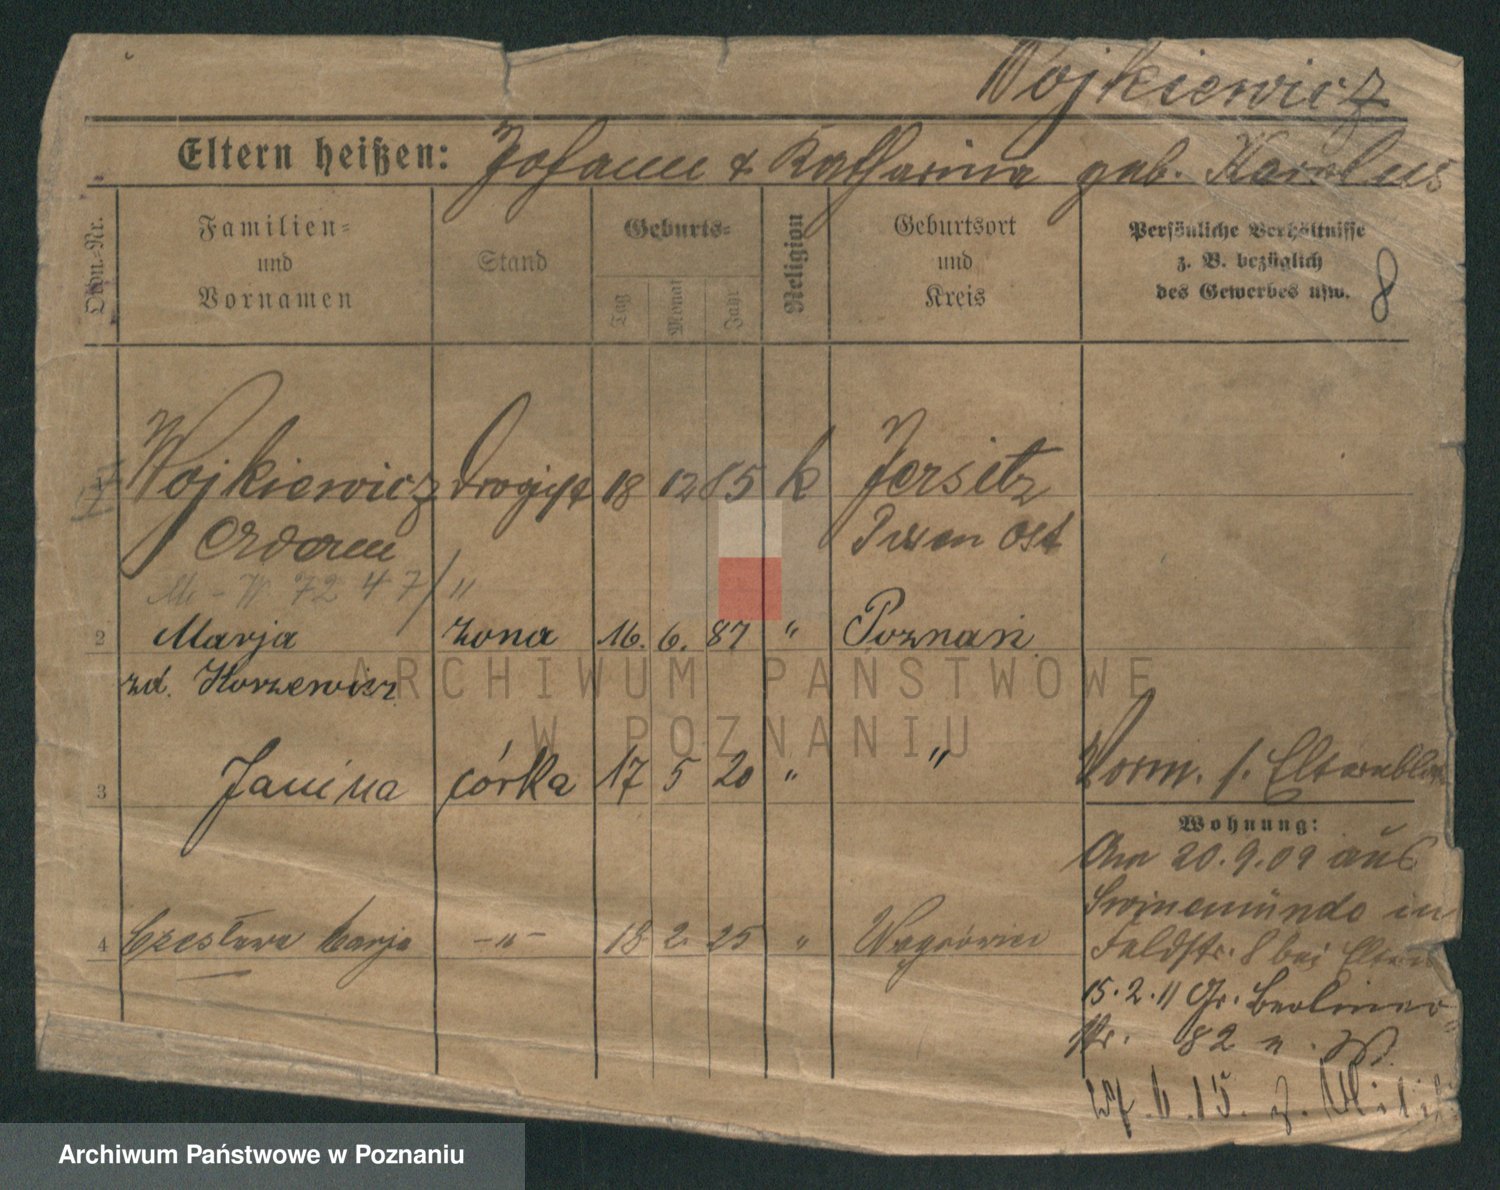 Wojkiewicz
Eltern heißen: Johann & Katharina geb. Karolus
Ordn.-Nr.
Familien=
und
Vornamen
Stand
Geburts=
Tag
Monat
Jahr
Religion
Geburtsort
und
Kreis
Persönliche Verhältnisse
z. B. bezüglich
des Gewerbes usw.
8
Wojkiewicz Drogist 18 12 85 k Jersitz
Adam Posen Ost
M - W 7247/"
2 Marja żona 16. 6. 87 " Poznań
zd. Korzewicz
3 Janina córka 17 5 20 " " Vorm. s. Elternblatt
Wohnung:
Am 20.9.09 aus
Swinemünde in
Feldstr. 8 bei Eltern
4 Czesława Marja -"- 18 2. 25 " Wągrówiec
15.2.11 Gr. Berliner
str. 82 n. W.
27.6.15. z. Militär
ARCHIWUM PAŃSTWOWE
W POZNANIU
Archiwum Państwowe w Poznaniu